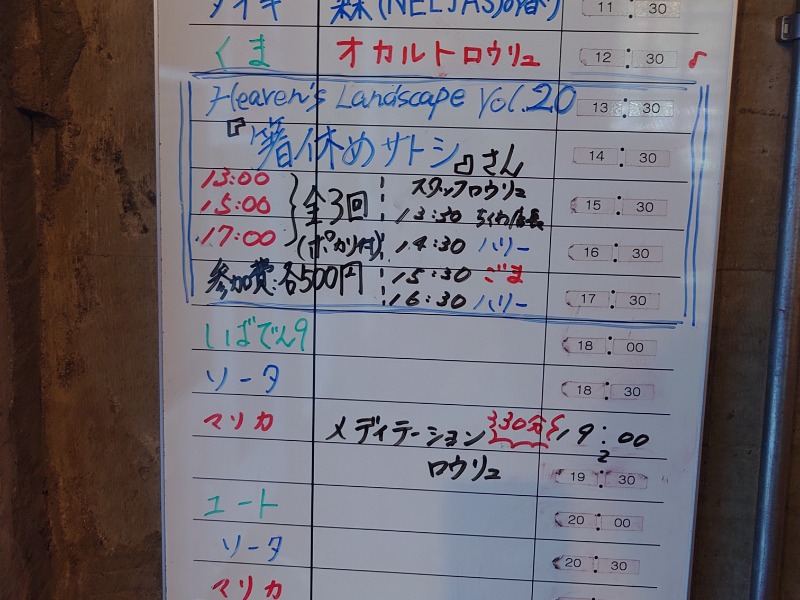 ダイキ 森(NELJAS)の香り 11:30
くま オカルトロウリュ 12:30 ♪
Heaven's Landscape Vol.20 13:30
『箸休めサトシ』さん 14:30
13:00 スタッフロウリュ
15:00 全3回 13:30 ちくわ店長 15:30
17:00 (ポカリ付) 14:30 バリー 16:30
参加費:各500円 15:30 ごま
16:30 バリー 17:30
しばでん9 18:00
ソータ 18:30
マリカ メディテーション 30分 19:00
2
ロウリュ 19:30
ユート 20:00
ソータ 20:30
マリカ